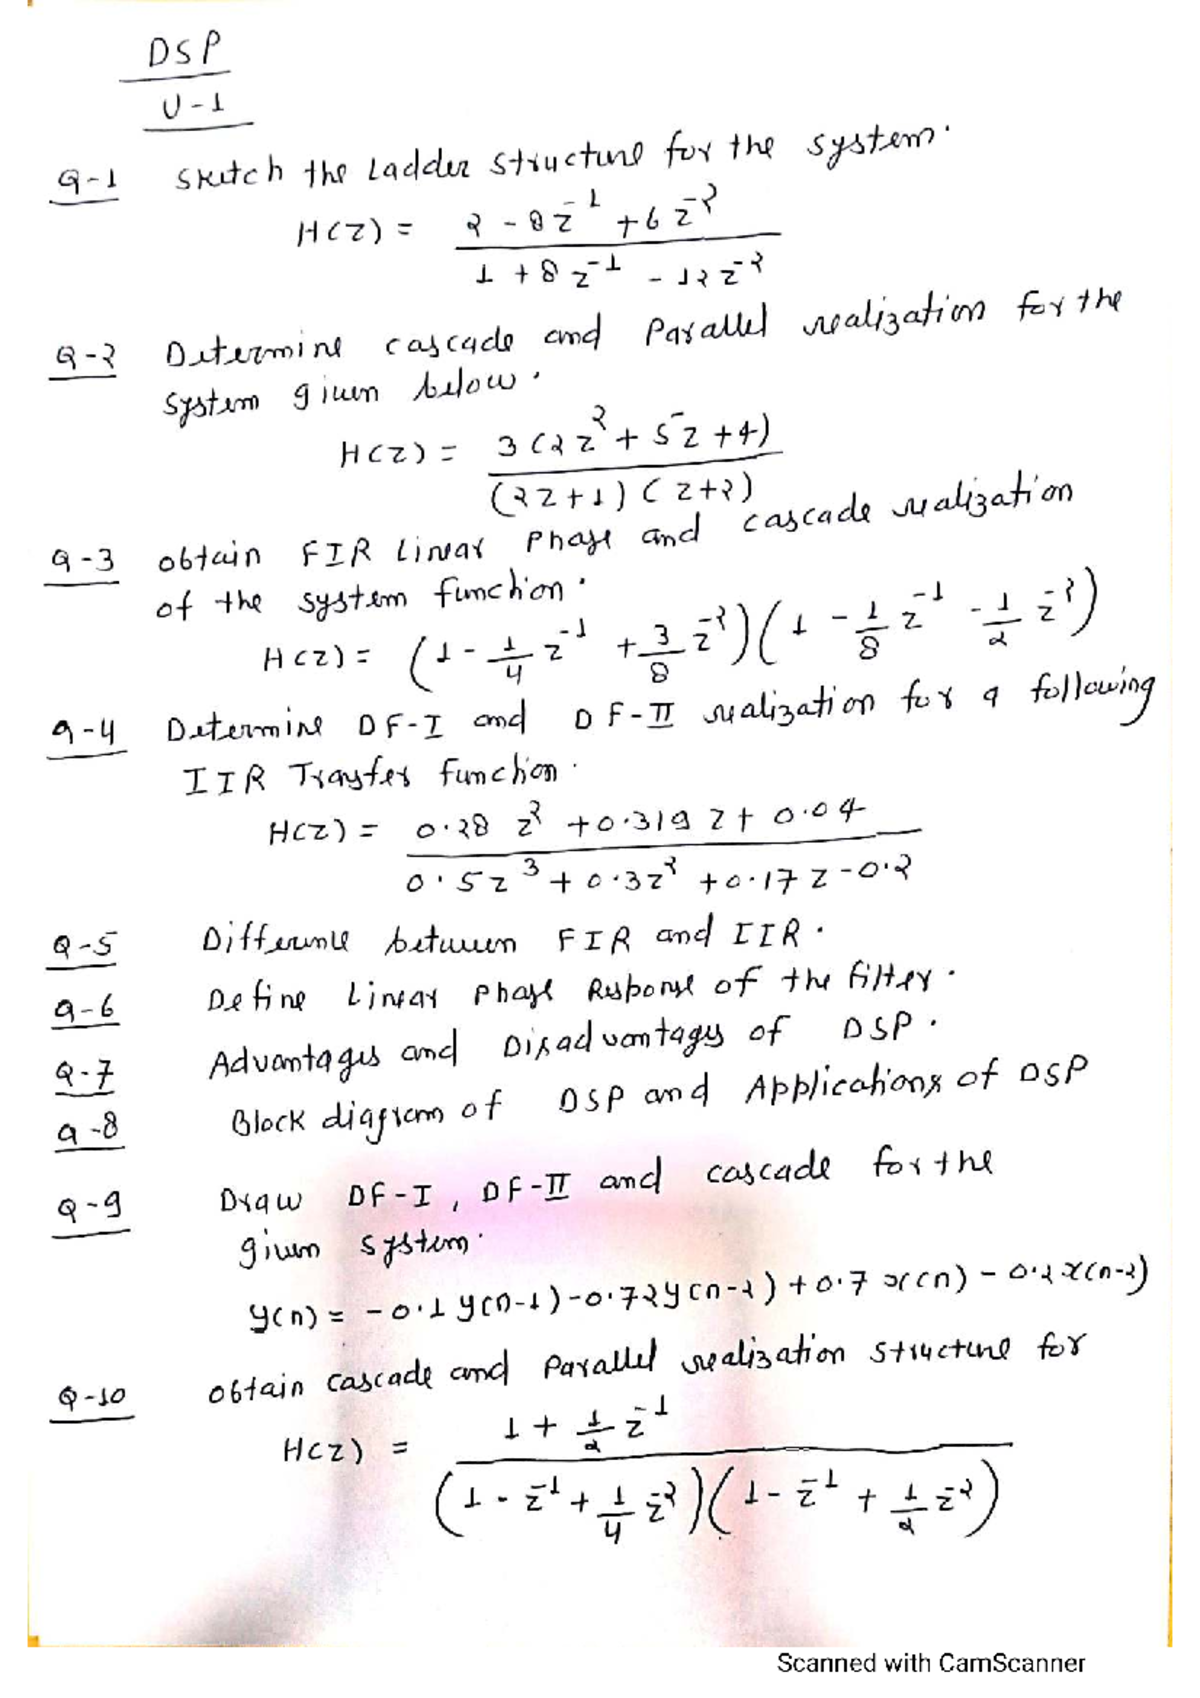 DSP
U-1
Q-1 Sketch the Ladder structure for the system.
H(z) = (2 - 8z^-1 + 6z^-2) / (1 + 8z^-1 - 12z^-2)
Q-2 Determine cascade and Parallel realization for the
system given below.
H(z) = 3(2z^2 + 5z + 4) / ((2z+1)(z+2))
Q-3 obtain FIR Linear Phase and cascade realization
of the system function.
H(z) = (1 - 1/4 z^-1 + 3/8 z^-2)(1 - 1/8 z^-1 - 1/2 z^-2)
Q-4 Determine DF-I and DF-II realization for a following
IIR Transfer function.
H(z) = (0.28 z^2 + 0.319 z + 0.04) / (0.5z^3 + 0.3z^2 + 0.17z - 0.2)
Q-5 Difference between FIR and IIR.
Q-6 Define Linear Phase Response of the filter.
Q-7 Advantages and Disadvantages of DSP.
Q-8 Block diagram of DSP and Applications of DSP
Q-9 Draw DF-I, DF-II and cascade for the
given system.
y(n) = -0.1y(n-1) - 0.72y(n-2) + 0.7x(n) - 0.2x(n-2)
Q-10 obtain cascade and Parallel realization structure for
H(z) = (1 + 1/2 z^-1) / ((1 - z^-1 + 1/4 z^-2)(1 - z^-1 + 1/2 z^-2))
Scanned with CamScanner